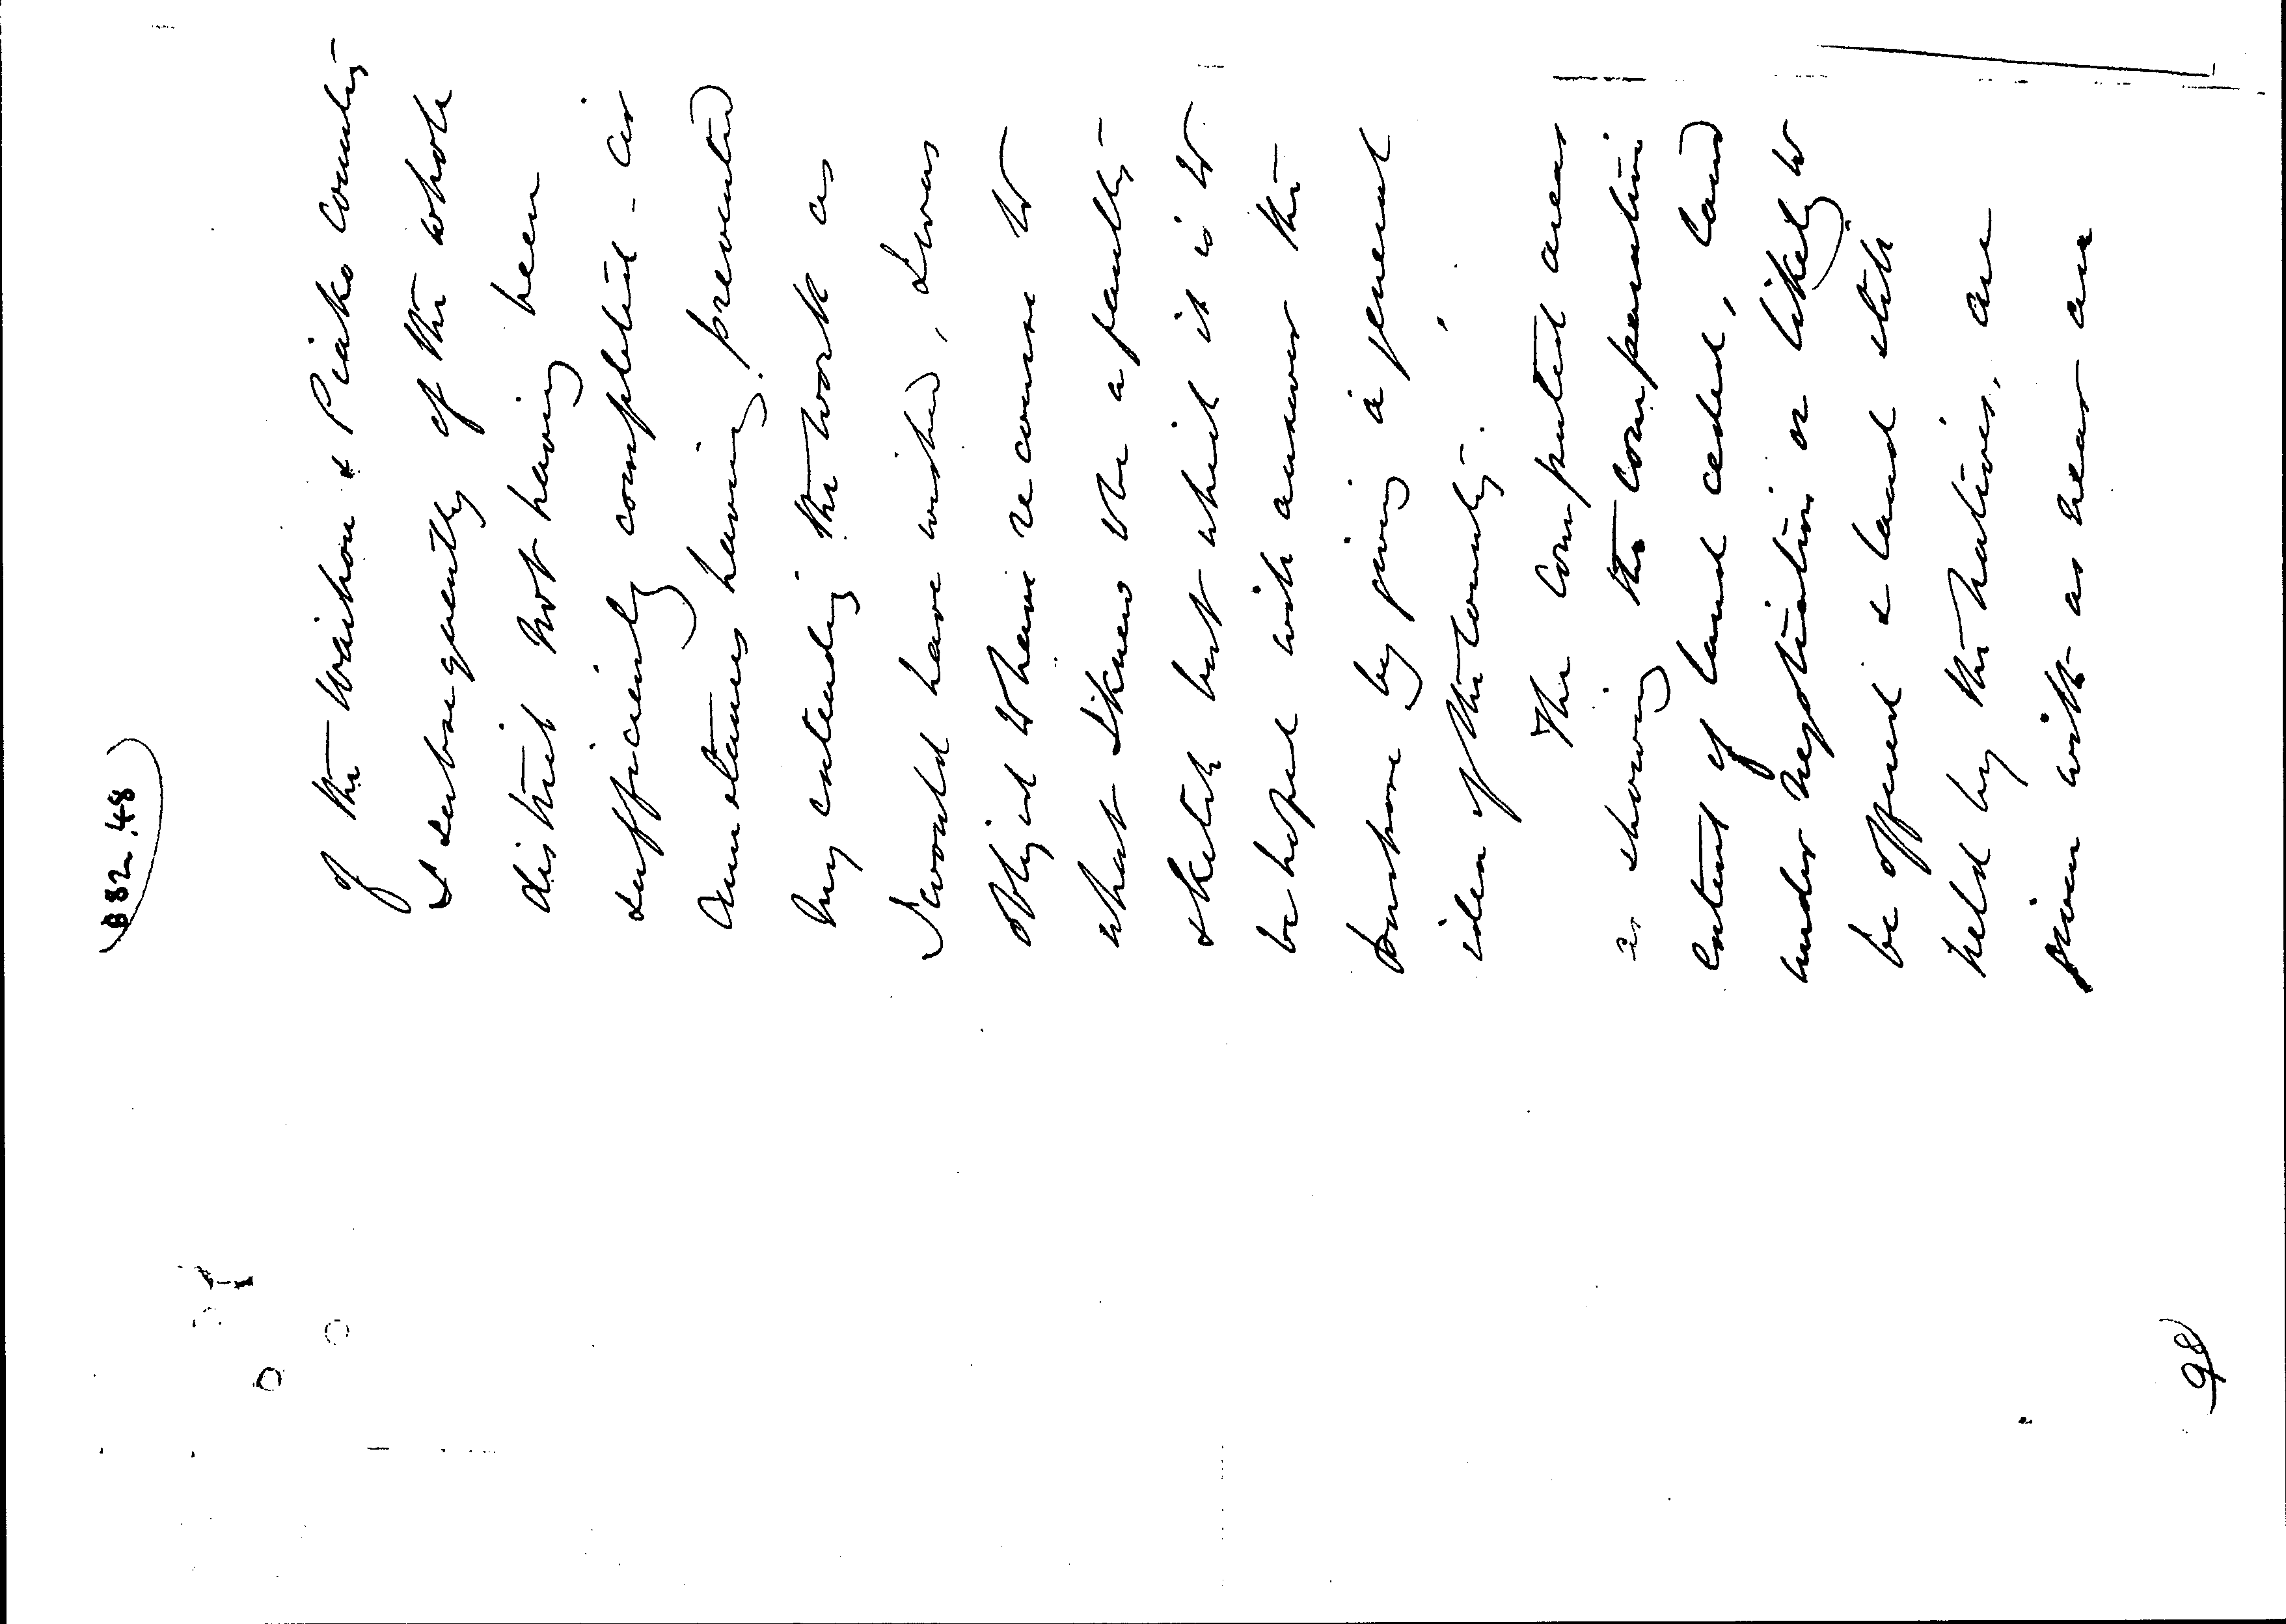 B82.48
of the Waihou & Piako country
& subsequently of the whole
district not having been
sufficiently completed - cir
cumstances having prevented
my extending the work as
I would have wished, I was
obliged to have recourse to
what I knew to be a faulty
sketch but which it is to
be hoped will answer the
purpose by giving a general
idea of the country.
The computed areas
as showing the comparative
extent of land ceded, land
under negotiation or likely to
be offered & land still
held by the natives, are
given with as near an
98